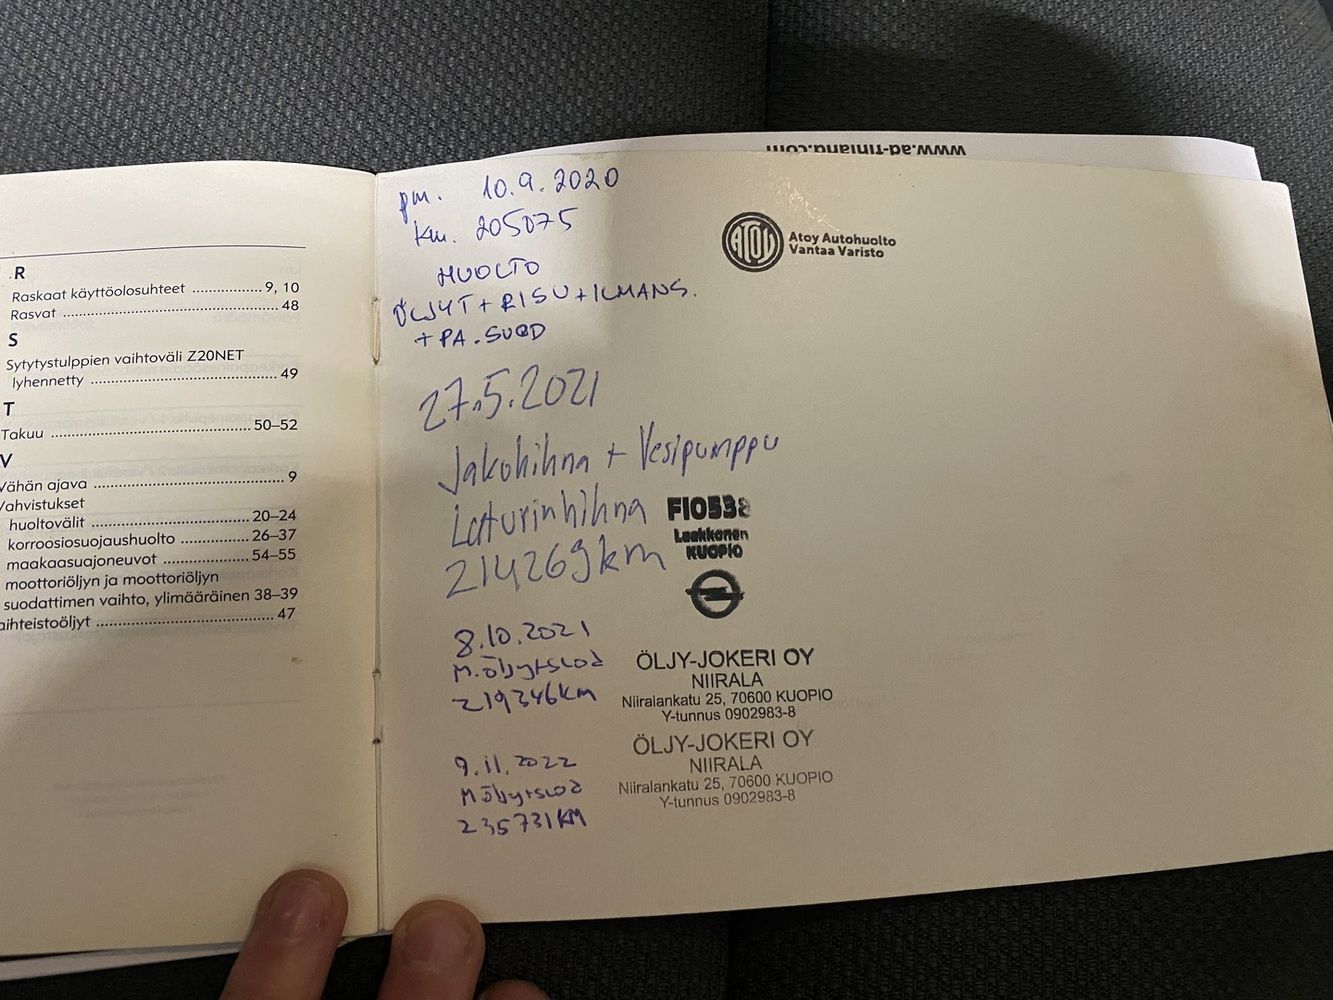 www.ad-finland.com
R
Raskaat käyttöolosuhteet ................ 9, 10
Rasvat ................ 48
S
Sytytystulppien vaihtoväli Z20NET
lyhennetty ................ 49
T
Takuu ................ 50–52
V
Vähän ajava ................ 9
Vahvistukset
huoltovälit ................ 20–24
korroosiosuojaushuolto ................ 26–37
maakaasuajoneuvot ................ 54–55
moottoriöljyn ja moottoriöljyn
suodattimen vaihto, ylimääräinen 38–39
aihteistoöljyt ................ 47
pm. 10.9.2020
km. 205075
HUOLTO
ÖLJYT + RISU + ILMANS.
+ PA.SUOD
ATOY
Atoy Autohuolto
Vantaa Varisto
27.5.2021
Jakohihna + Vesipumppu
Laturinhihna
214269km
FI0538
Laakkonen
KUOPIO
8.10.2021
M.öljy+suod
219346km
ÖLJY-JOKERI OY
NIIRALA
Niiralankatu 25, 70600 KUOPIO
Y-tunnus 0902983-8
9.11.2022
M öljy+suod
235731KM
ÖLJY-JOKERI OY
NIIRALA
Niiralankatu 25, 70600 KUOPIO
Y-tunnus 0902983-8